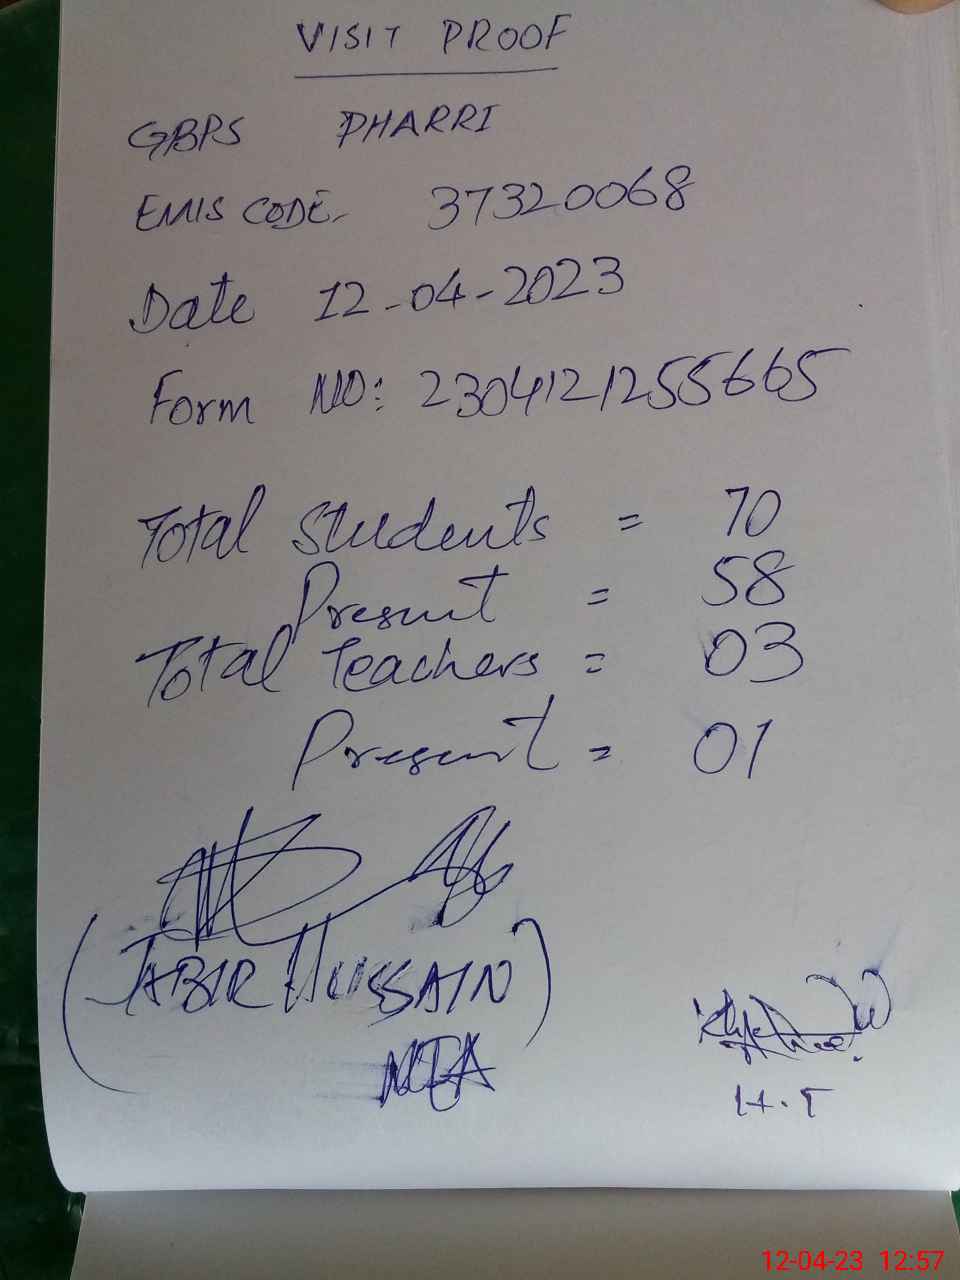 VISIT PROOF
GBPS PHARRI
EMIS CODE. 37320068
Date 12-04-2023
Form NO: 230412125​5665
Total Students = 70
Present = 58
Total Teachers = 03
Present = 01
(JABIR HUSSAIN)
MEA
H.T
12-04-23 12:57